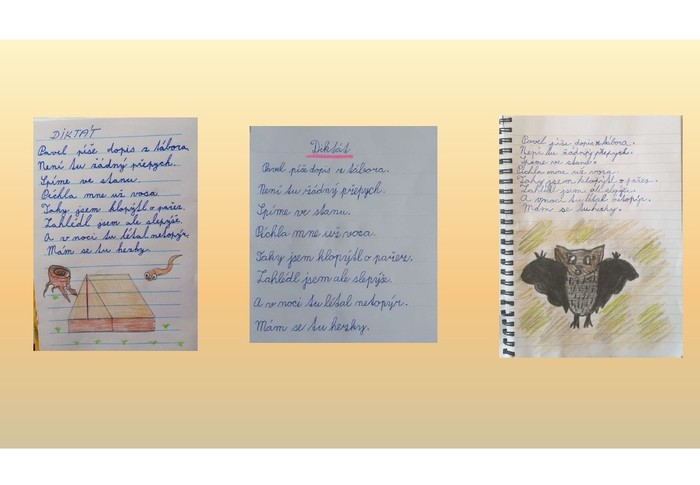 DIKTÁT
Pavel píše dopis z tábora.
Není tu žádný přepych.
Spíme ve stanu.
Píchla mne už vosa.
Taky jsem klopýtl o pařez.
Zahlédl jsem ale slepýše.
A v noci tu létal netopýr.
Mám se tu hezky.
Diktát
Pavel píše dopis z tábora.
Není tu žádný přepych.
Spíme ve stanu.
Píchla mne už vosa.
Taky jsem klopýtl o pařez.
Zahlédl jsem ale slepýše.
A v noci tu létal netopýr.
Mám se tu hezky.
Pavel píše dopis z tábora.
Není tu žádný přepych.
Spíme ve stanu.
Píchla mne už vosa.
Taky jsem klopýtl o pařez.
Zahlédl jsem ale slepýše.
A v noci tu létal netopýr.
Mám se tu hezky.